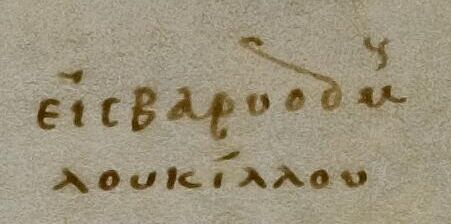 εἰς βαρυοδμου
λουκίλλου